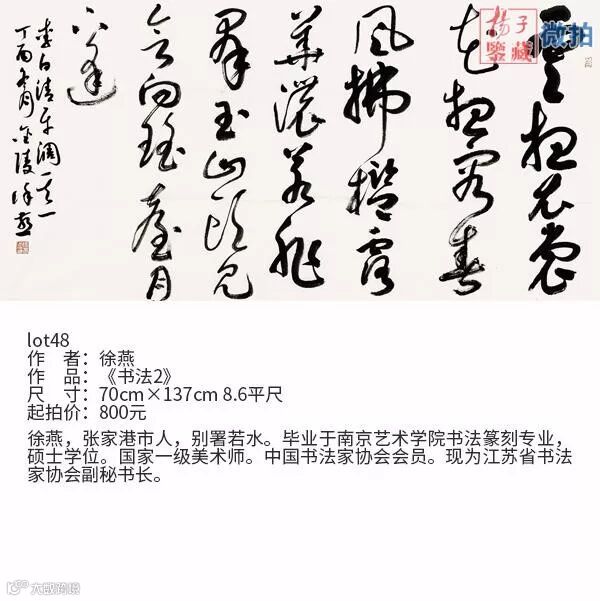 揚子
鑒藏
微拍
雲想衣裳
花想容春
風拂檻露
華濃若非
羣玉山頭見
會向瑤臺月
下逢
李白清平調其一
lot48
作 者：徐燕
作 品：《书法2》
尺 寸：70cm×137cm 8.6平尺
起拍价：800元
徐燕，张家港市人，别署若水。毕业于南京艺术学院书法篆刻专业，
硕士学位。国家一级美术师。中国书法家协会会员。现为江苏省书法
家协会副秘书长。